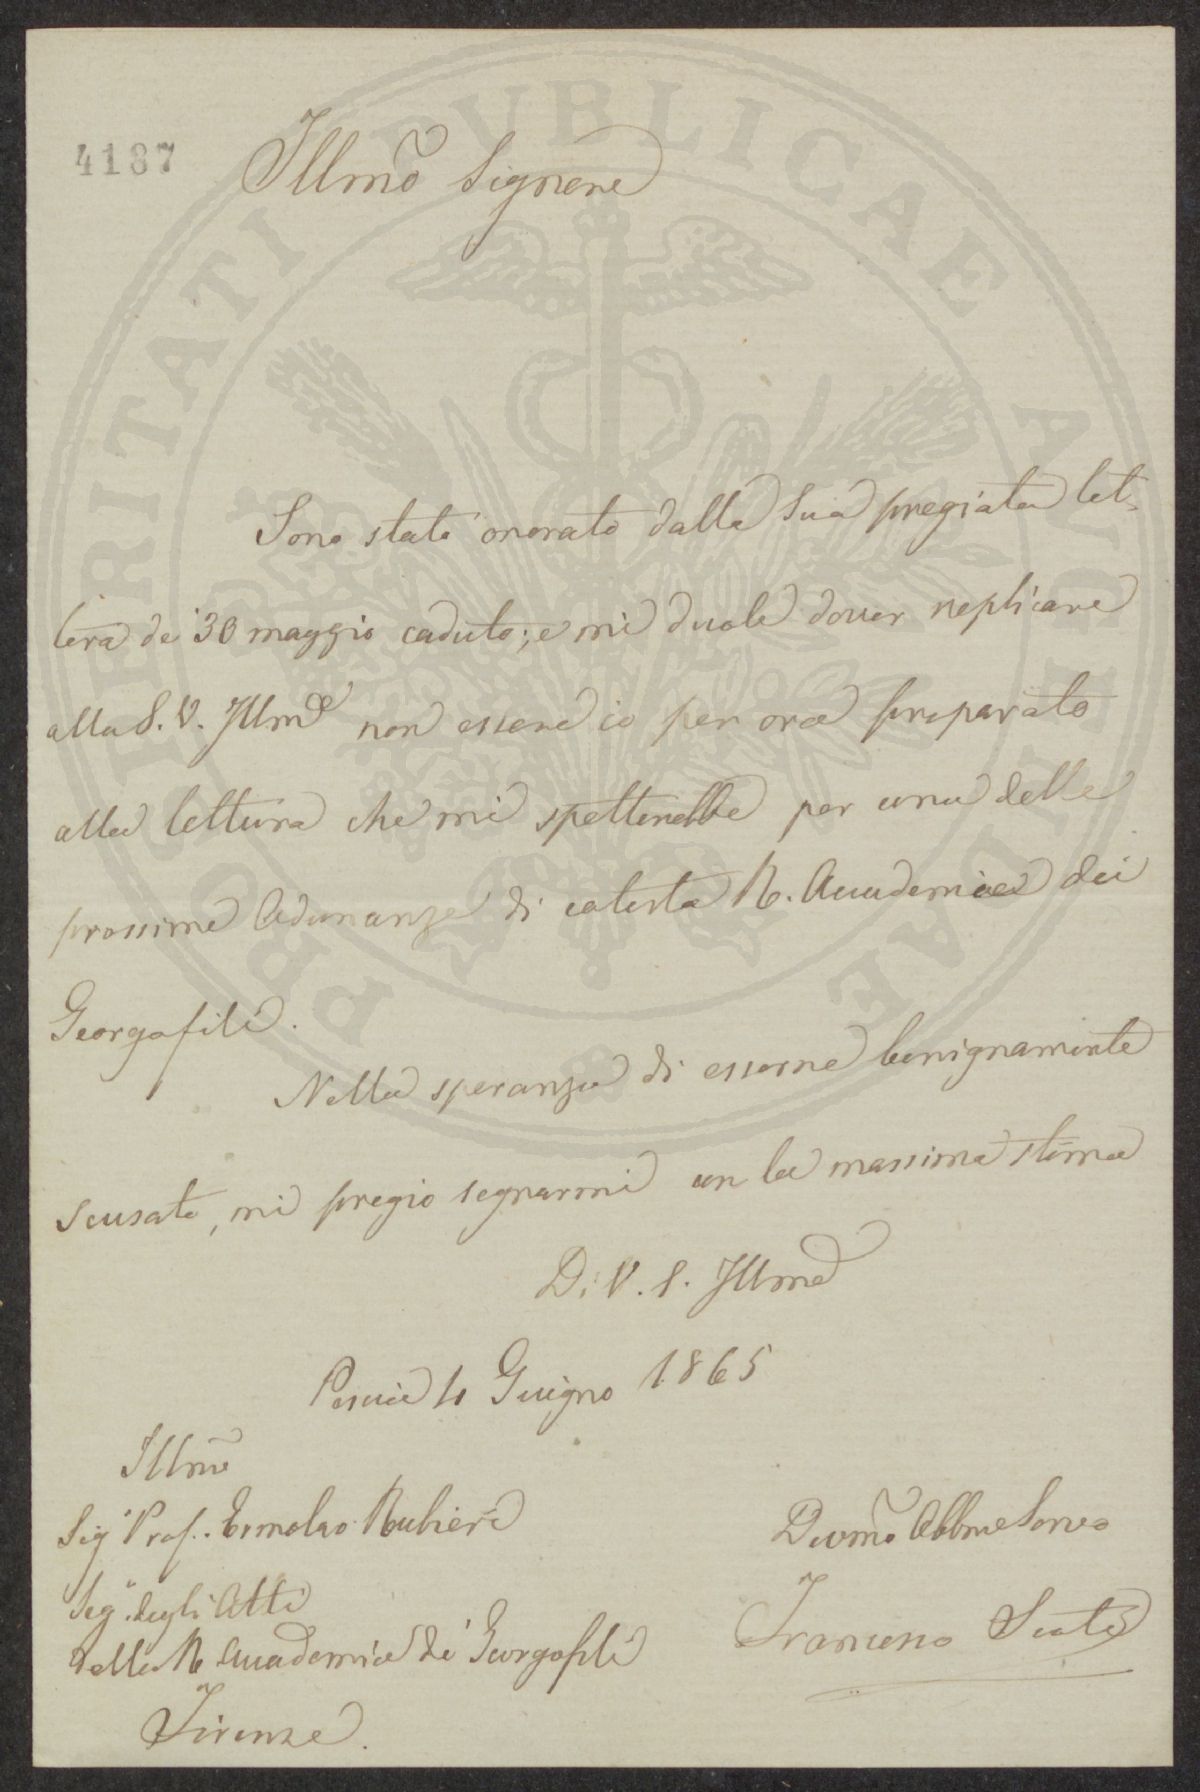 4187
Illmo Signore
Sono stato onorato dalla Sua pregiata let-
tera de' 30 maggio caduto; e mi duole dover replicare
alla S. V. Illma non essere io per ora preparato
alla lettura che mi spetterebbe per una delle
prossime Adunanze di cotesta R. Accademia dei
Georgofili.
Nella speranza di esserne benignamente
scusato, mi pregio segnarmi con la massima stima
Di V. S. Illma
Pescia 4 Giugno 1865
Illmo
Sigr Prof. Ermolao Rubieri
Segr. degli Atti
della R. Accademia de' Georgofili
Firenze.
Devmo Obbmo Servo
Francesco Scoti
PROSPERITATI PUBLICAE AUGENDAE